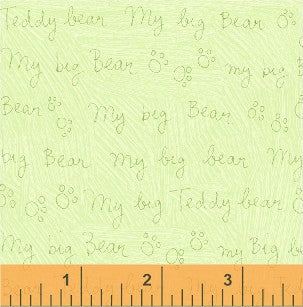 Teddy bear My Big Bear
My big Bear my big
Bear My big Bear
big Bear My big bear My
My big Teddy bear
My big Bear my Big b
1 2 3